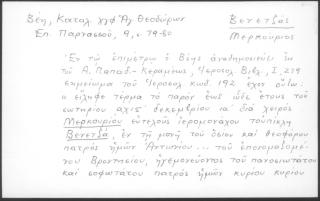 Βέη, Καταλ. χχφ Ἁγ. Θεοδώρων
Βενετζᾶς
Ἐπ. Παρνασσοῦ, 9, σ. 79-80
Μερκούριος
Ἐν τῷ ἐπιμέτρῳ ὁ Βέης ἀναδημοσιεύει ἐκ
τοῦ Α. Παπαδ.- Κεραμέως, Ἱεροσολ. Βιβλ., Ι, 259
σημείωμα τοῦ Ἱεροσολ. κωδ. 192 ἔχον οὕτω:
« εἴληφε τέρμα τὸ παρὸν ἕως ὧδε ἔτους τοῦ
σωτηρίου αχιε΄ δεκεμβρίου ια΄ διὰ χειρὸς
Μερκουρίου εὐτελοῦς ἱερομονάχου τοὐπίκλη
Βενετζᾶ, ἐν τῇ μονῇ τοῦ ὁσίου καὶ θεοφόρου
πατρὸς ἡμῶν Ἀντωνίου... τοῦ ἐπονομαζομέ-
νου Βροντησίου, ἡγεμονεύοντος τοῦ πανοσιωτάτου
καὶ σοφωτάτου πατρὸς ἡμῶν κυρίου κυρίου